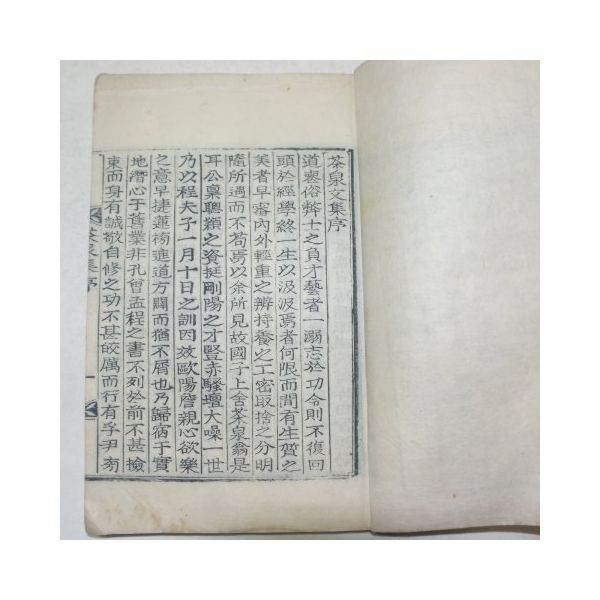 茶泉文集序
道喪俗弊士之負才藝者一溺志於功令則不復回
頭於經學終一生以汲汲焉者何限而間有生質之
美者早審內外輕重之辨持養之工密取捨之分明
隨所遇而不苟焉以余所見故國子上舍茶泉翁是
耳公稟聰穎之資挺剛陽之才豎赤騷壇大噪一世
乃以程夫子一月十日之訓因效歐陽詹親心欲樂
之意早捷蓮榜進道方闢而猶不屑也乃歸宿于實
地潛心于舊業非孔曾孟程之書不列於前不甚撿
束而身有誠敬自修之功不甚皎厲而行有孚尹旁
茶泉集序 一